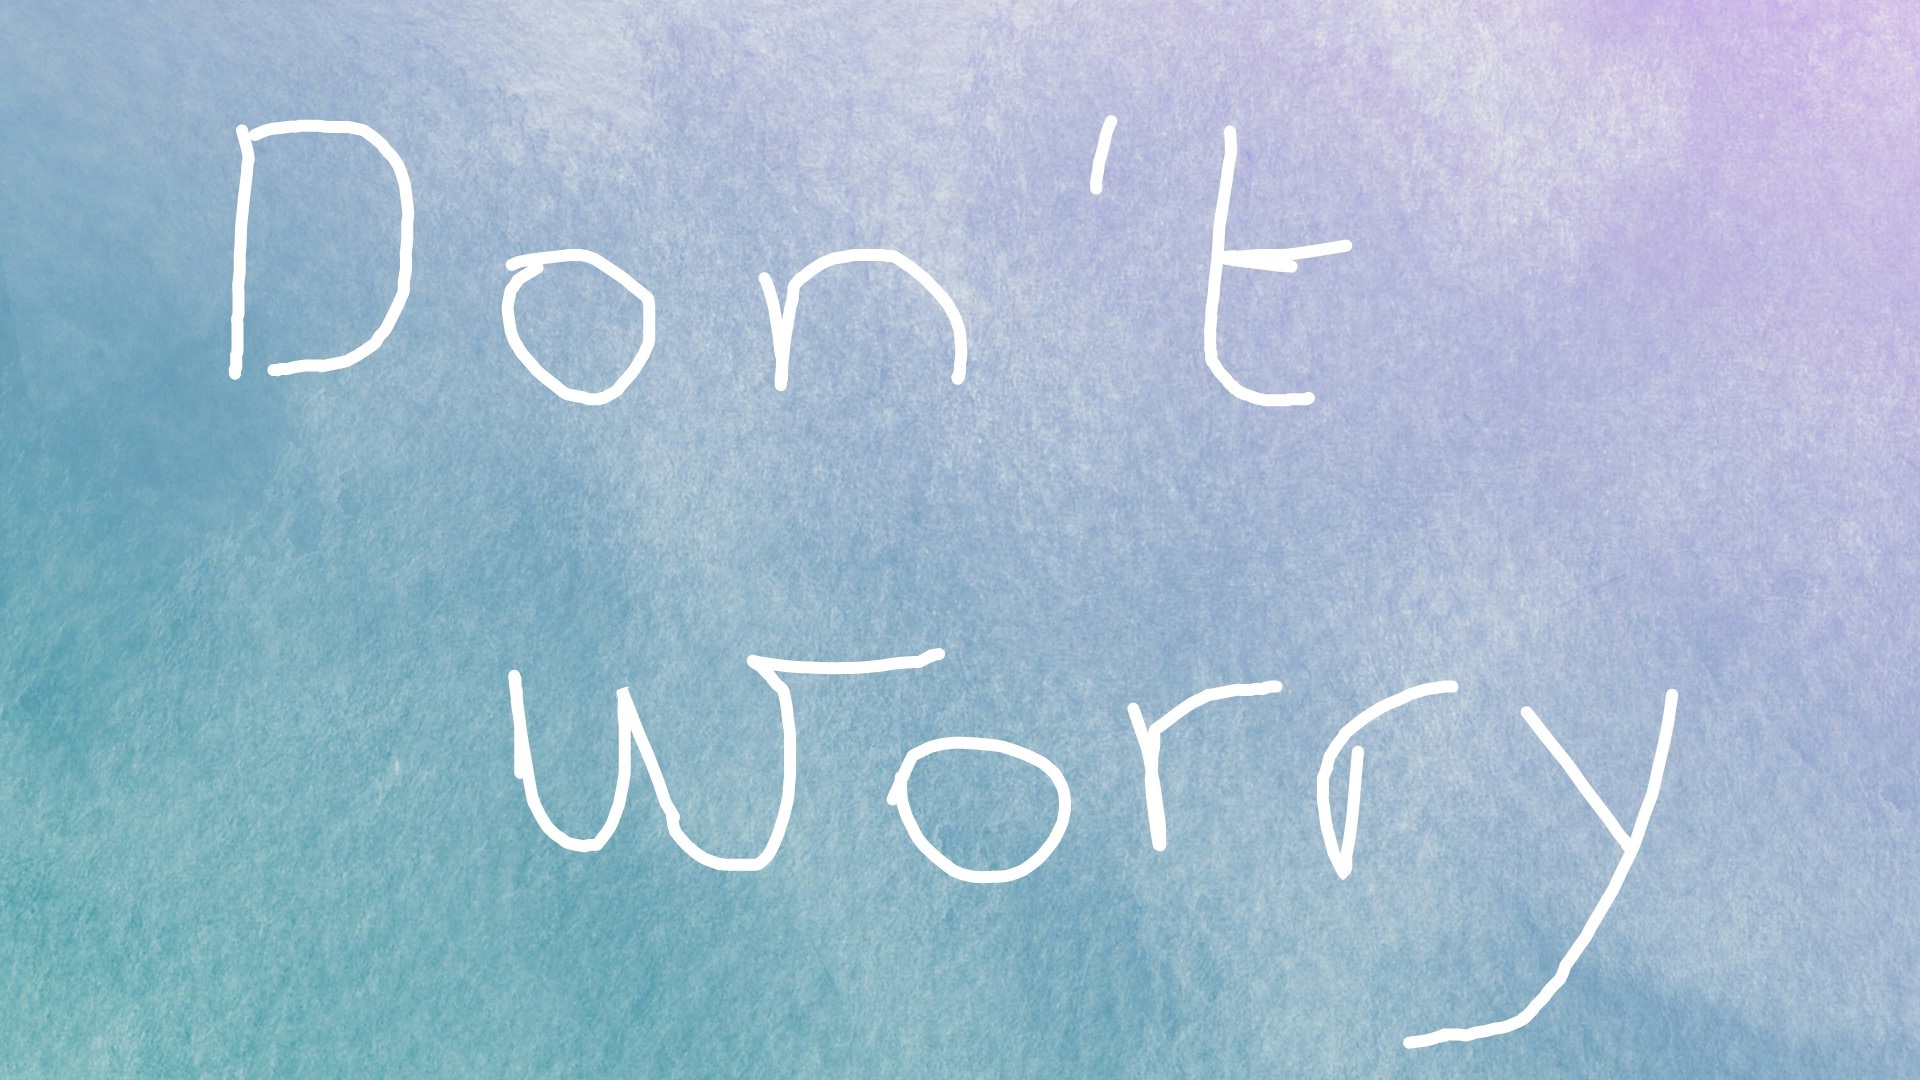 Don't
worry